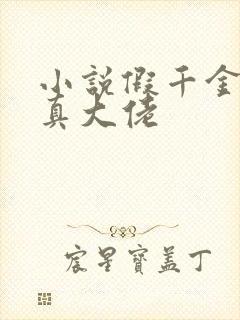 小說假千金
真大佬
宸星寶盖丁